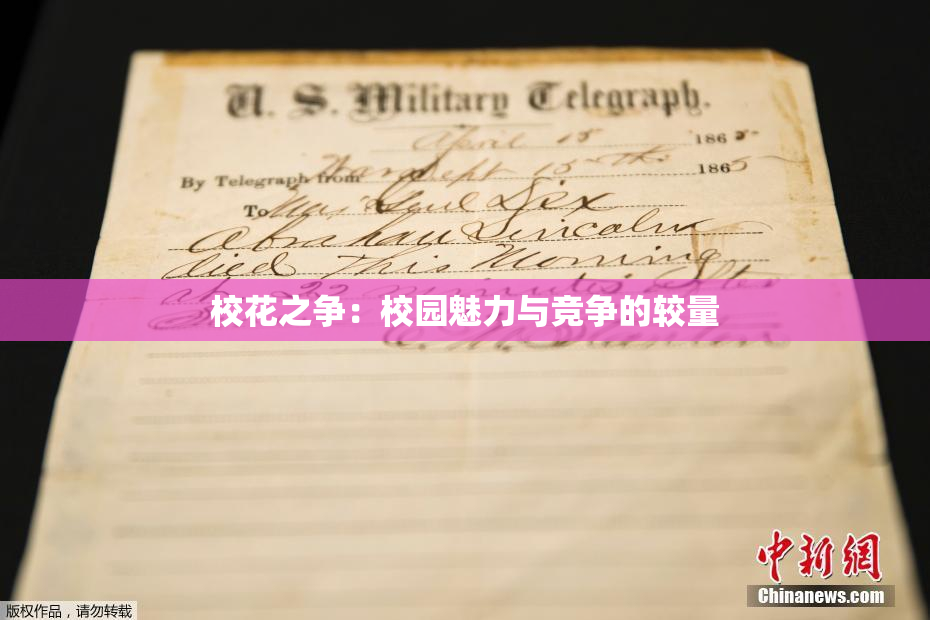 U. S. Military Telegraph.
April 15 1865
By Telegraph from War Dept 15th 1865
To Maj Genl Dix
Abraham Lincoln
died This Morning
at 22 minutes after
校花之争：校园魅力与竞争的较量
E. M. Stanton
中新网
Chinanews.com
版权作品，请勿转载